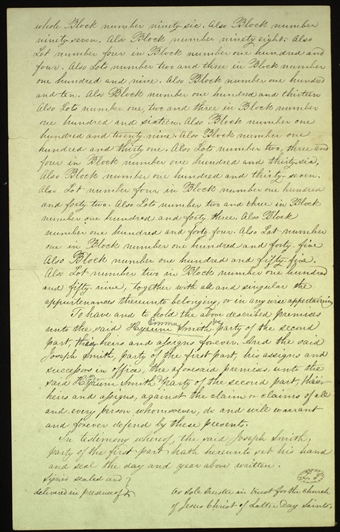 whole Block number ninety six. Also Block number
ninety seven. Also Block number ninety eight. Also
Lot number four in Block number one hundred and
four. Also Lots number two and three in Block number
one hundred and nine. Also Block number one hundred
and ten. Also Block number one hundred and thirteen
Also Lots number one, two and three in Block number
one hundred and sixteen. Also Block number one
hundred and twenty nine. Also Block number one
hundred and thirty one. Also Lot number two, three and
four in Block number one hundred and thirty six,
Also Block number one hundred and thirty seven.
Also Lot number four in Block number one hundred
and forty two. Also Lots number two and three in Block
number one hundred and forty three. Also Block
number one hundred and forty four. Also Lot number
one in Block number one hundred and forty five
Also Block number one hundred and fifty five.
Also Lot number two in Block number one hundred
and fifty nine, together with all and singular the
appurtenances thereunto belonging, or in any wise appertaining
To have and to hold the above described premises
Emma
unto the said Hyrum Smith party of the second
part, heirs and assigns forever. And the said
Joseph Smith, party of the first part, his assigns and
successors in office, the aforesaid premises unto the
said Hyrum Smith party of the second part
heirs and assigns, against the claim or claims of all
and every person whomsoever, do and will warrant
and forever defend by these presents.
In testimony whereof, the said Joseph Smith,
party of the first part hath hereunto set his hand
and seal the day and year above written.
Signed sealed and
delivered in presence of
As Sole Trustee in trust for the church
of Jesus Christ of Latter Day Saints.